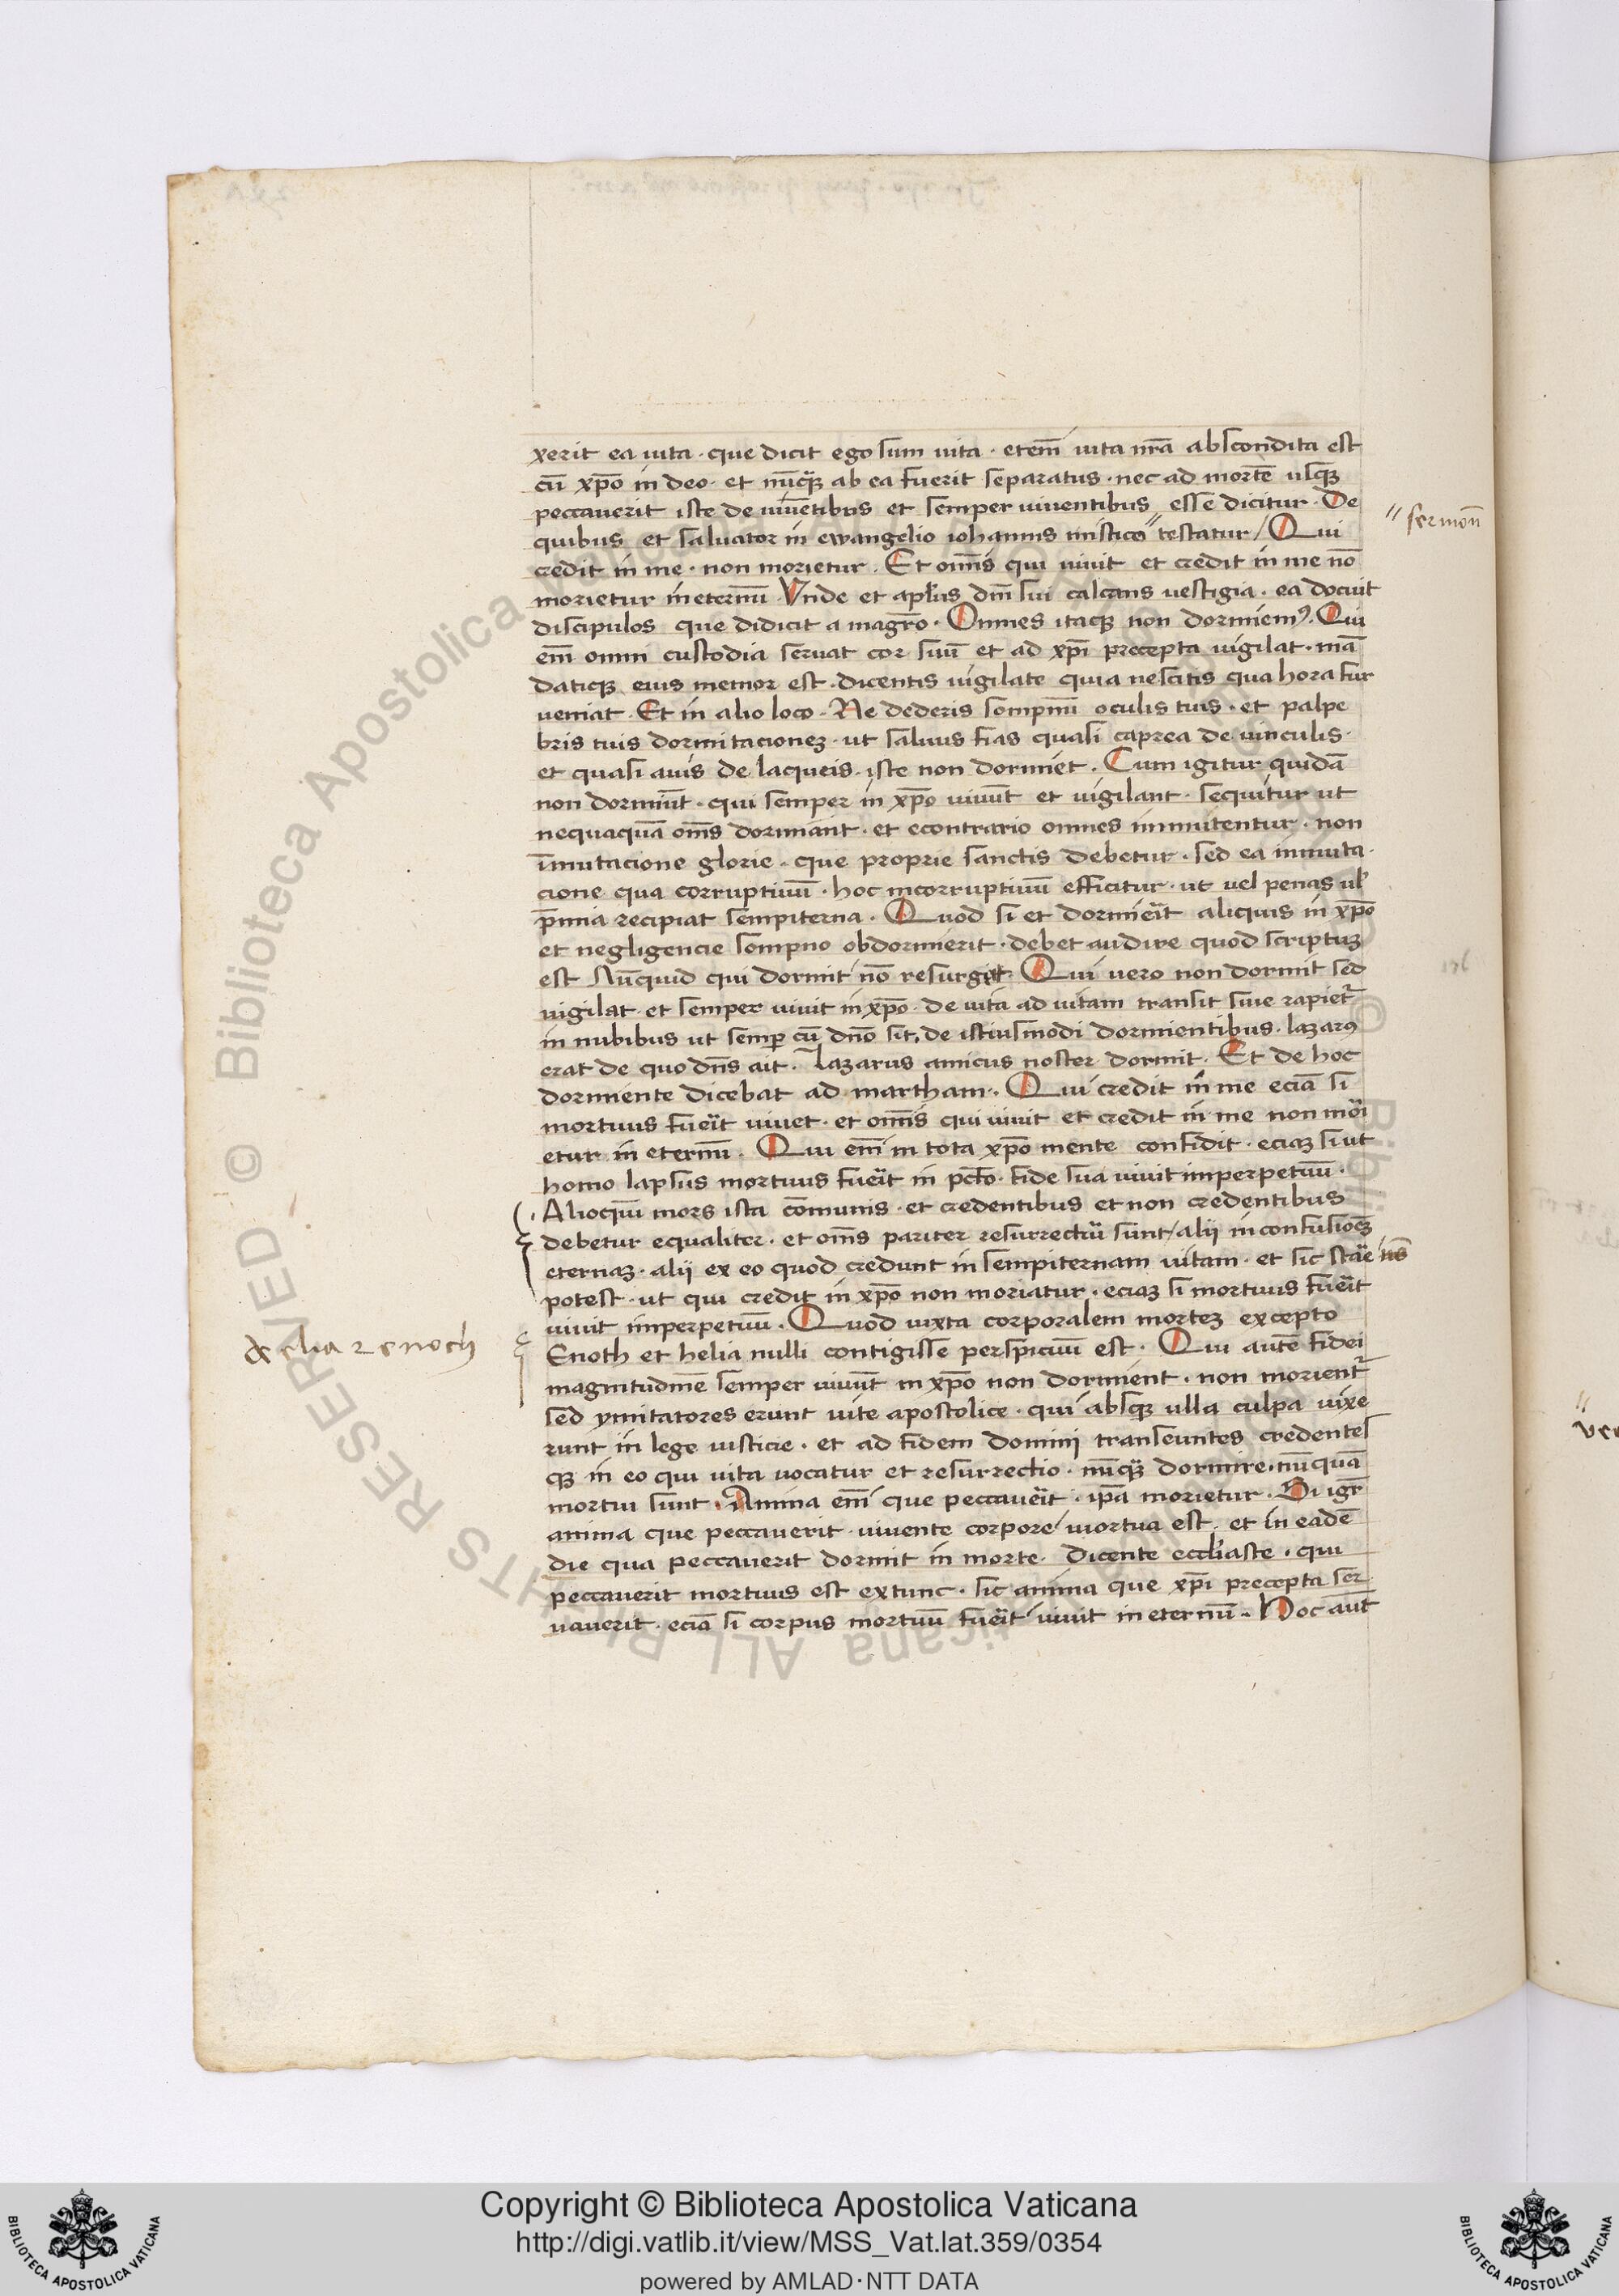 xerit ea uita · que dicit ego sum uita · eteni᷑ uita nr̃a abscondita est
cũ xp̃o in deo · et nũq̃ꝫ ab ea fuerit separatus · nec ad mortẽ usqꝫ
peccauerit iste de viuẽtibus et semper uiuentibus esse dicitur · De
quibus et saluator in ewangelio iohannis mistico" testatur / Qui
"sermon̄
credit in me · non morietur · Et om̃is qui uiuit et credit in me nõ
morietur in eternũ Vnde et apl̃us dñi sui calcans uestigia · ea docuit
discipulos que didicit a magr̃o · Omnes itaqꝫ non dormiemꝰ · Qui
em̃ omni custodia seruat cor suũ et ad xp̃i precepta uigilat · mã
datiqꝫ eius memor est · dicentis uigilate quia nescitis qua hora fur
ueniat · Et in alio loco · Ne dederis sompnũ oculis tuis · et palpe
bris tuis dormitacioneꝫ · ut saluus fias quasi caprea de uinculis ·
et quasi auis de laqueis · iste non dormiet · Cum igitur quidã
non dormiũt · qui semper in xp̃o uiuũt et uigilant · sequitur ut
nequaquã om̃s dormiant · et econtrario omnes inmutentur · non
ĩmutacione glorie · que proprie sanctis debetur · sed ea inmuta ·
cione qua corruptiuũ · hoc incorruptiuũ efficitur · ut uel penas ul̃
p̃mia recipiat sempiterna · Quod si et dormieĩt aliquis in xp̃o
et negligencie sompno obdormierit · debet audire quod scriptuꝫ
est Nũcquid qui dormit nõ resurgit · Qui uero non dormit sed
uigilat · et semper uiuit in xp̃o · de uita ad uitam transit siue rapiet᷑
in nubibus ut semꝑ cũ dño sit, de istiusmodi dormientibus · lazarꝰ
erat de quo dñs ait · Lazarus amicus noster dormit · Et de hoc
dormiente dicebat ad martham · Qui credit in me eciã si
mortuus fueĩt uiuet · et om̃is qui uiuit et credit in me non mori
etur in eternũ · Qui em̃ in tota xp̃o mente confidit · eciaꝫ si ut
homo lapsus mortuus fueĩt in pct̃o · fide sua uiuit imperpetuũ ·
Alioquin mors ista cõmunis · et credentibus et non credentibus
debetur equaliter · et om̃s pariter resurrecturi sunt / alij in confusioeꝫ
eternaꝫ · alij ex eo quod credunt in sempiternam uitam · et sic stare nõs
potest · ut qui credit in xp̃o non moriatur · eciaꝫ si mortuus fueĩt
uiuit imperpetuũ · Quod iuxta corporalem morteꝫ excepto
de elia ⁊ enoch
Enoth et helia nulli contigisse perspicuũ est · Qui autẽ fidei
magnitudinẽ semper uiuũt in xp̃o non dormient · non morient᷑
sed ymitatores erunt uite apostolice · qui absqꝫ ulla culpa uixe
runt in lege iusticie · et ad fidem domini transeuntes credentes
qꝫ in eo qui uita uocatur et resurrectio · nũq̃ꝫ dormire · nũquã
mortui sunt · Anima em̃ que peccaueĩt · ip̃a morietur · Si igr̃
anima que peccauerit · uiuente corpore / mortua est · et in eadẽ
die qua peccauerit dormit in morte · dicente eccl̃iaste · qui
peccauerit mortuus est extunc · sic anima que xp̃i precepta ser
uauerit · eciã si corpus mortuũ fueĩt uiuit in eternũ · Hoc aut̃
Copyright © Biblioteca Apostolica Vaticana
http://digi.vatlib.it/view/MSS_Vat.lat.359/0354
powered by AMLAD·NTT DATA
BIBLIOTECA APOSTOLICA VATICANA
BIBLIOTECA APOSTOLICA VATICANA
© Biblioteca Apostolica Vaticana ALL RIGHTS RESERVED